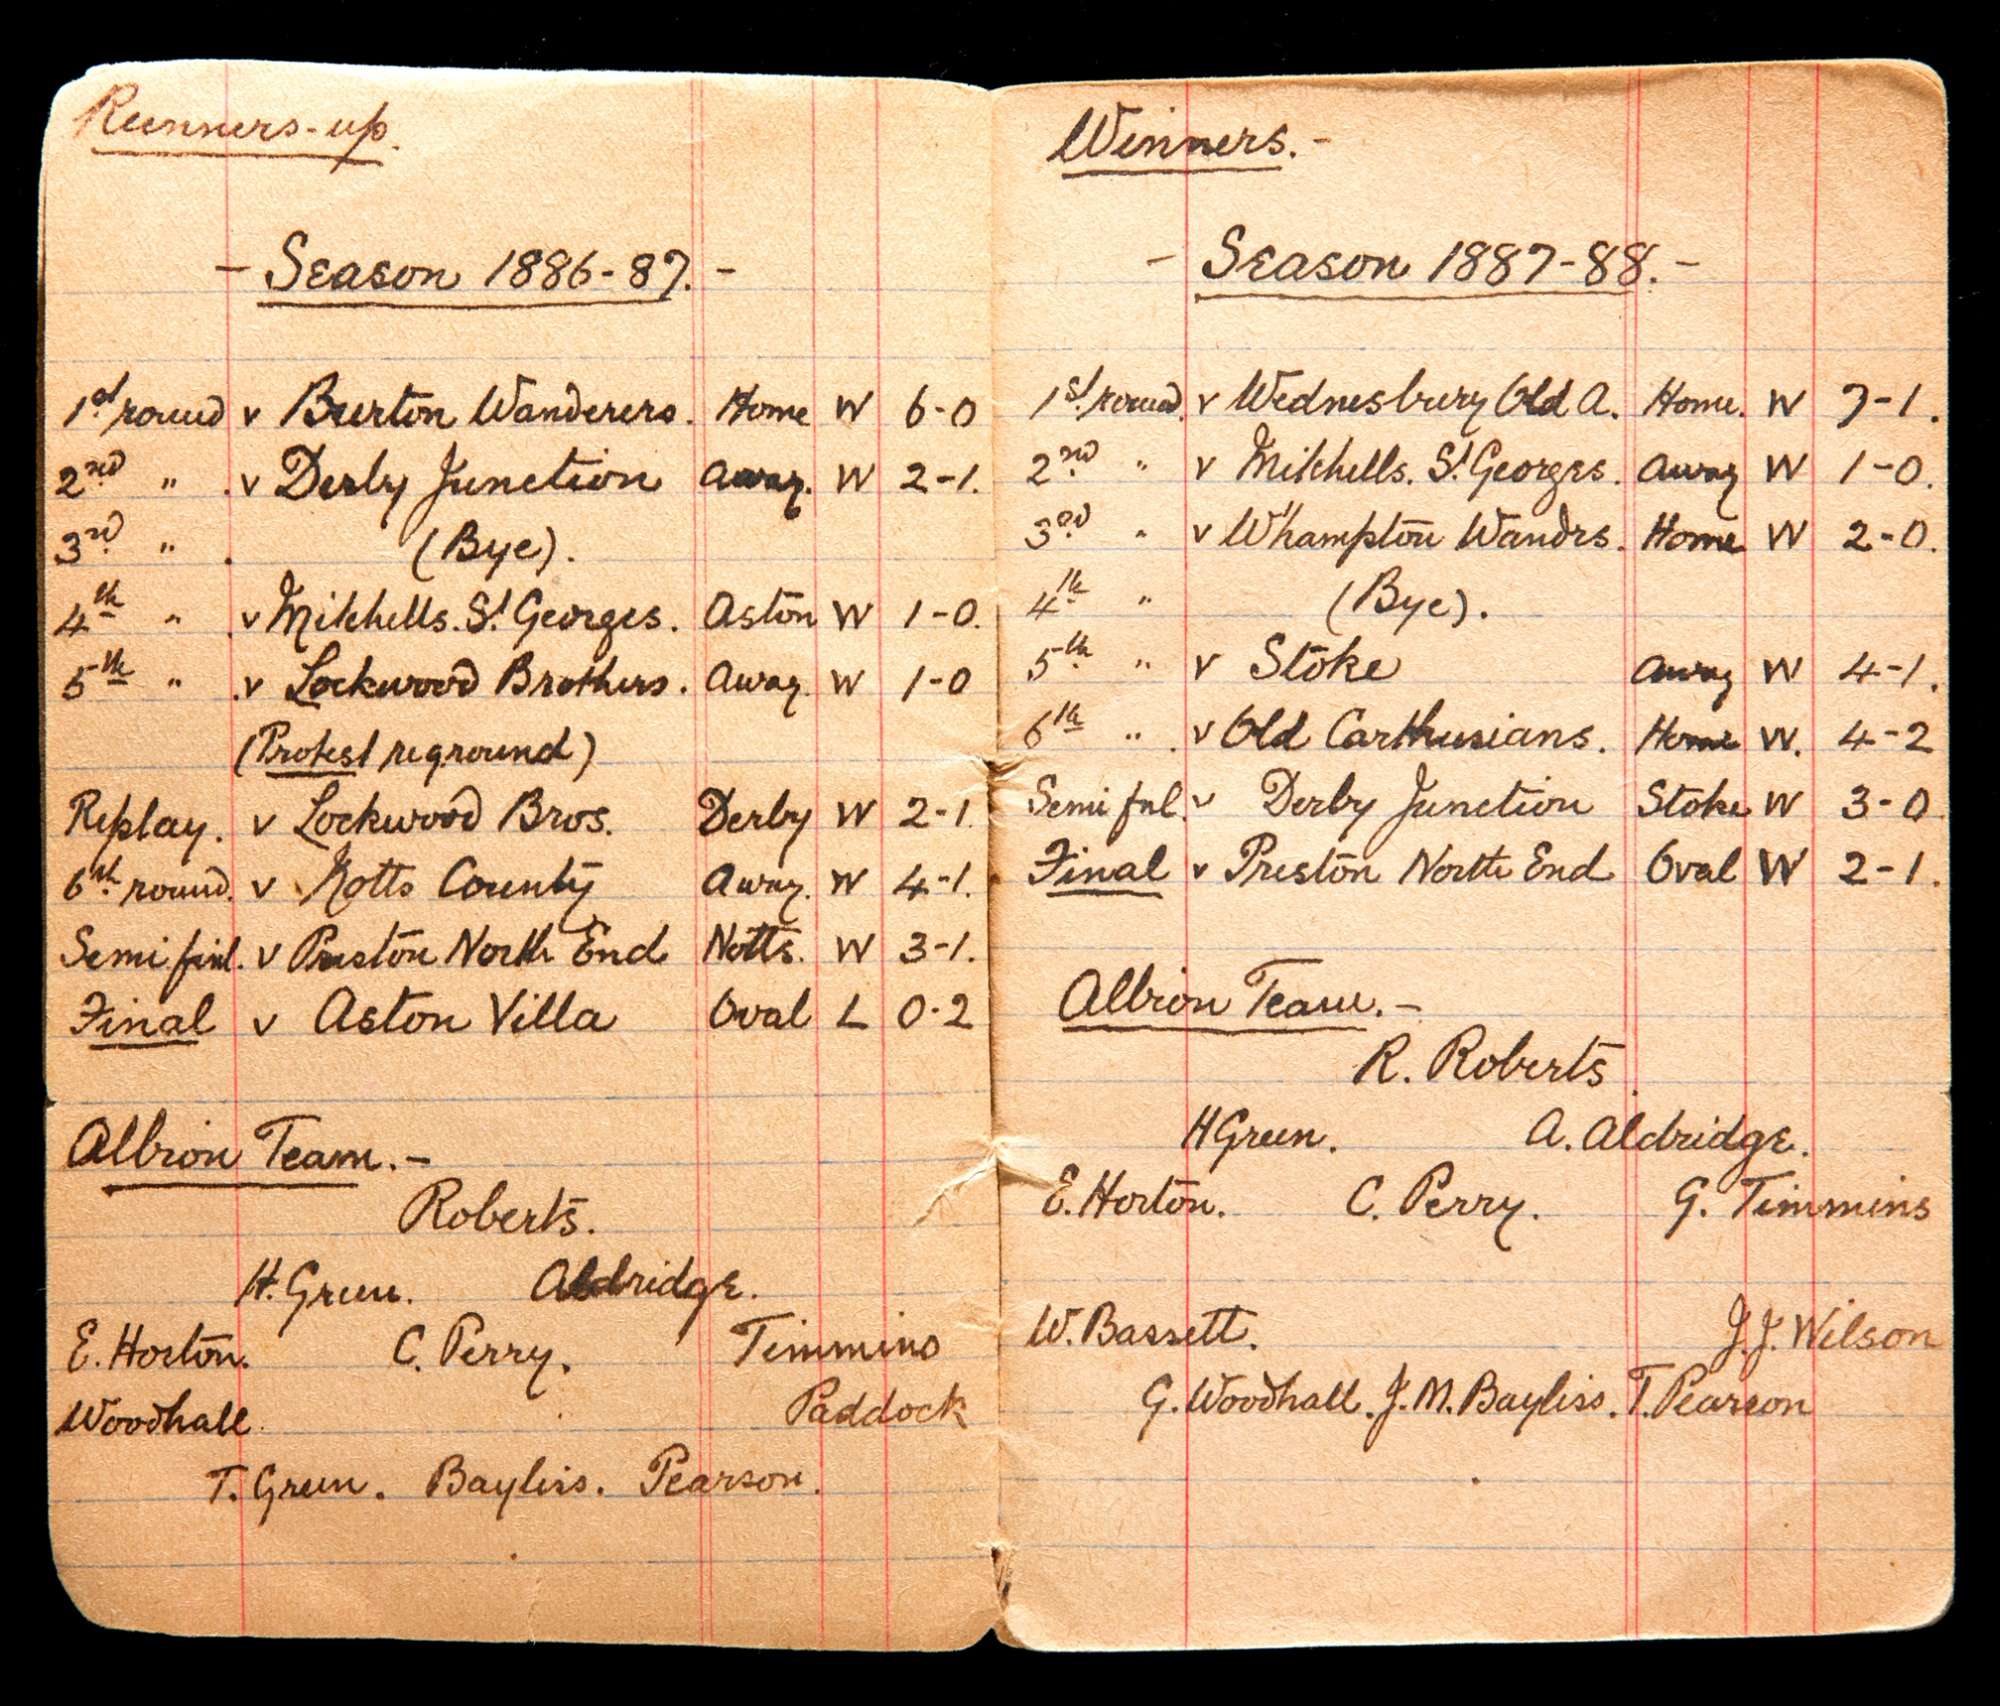 Runners-up.
- Season 1886-87. -
1st round v Burton Wanderers. Home W 6-0
2nd " . v Derby Junction Away. W 2-1.
3rd " . (Bye).
4th " . v Mitchells. St Georges. Aston W 1-0.
5th " . v Lockwood Brothers. Away. W 1-0
(Protest reground)
Replay. v Lockwood Bros. Derby W 2-1.
6th round. v Notts County Away. W 4-1.
Semi finl. v Preston North End Notts. W 3-1.
Final v Aston Villa Oval L 0-2
Albion Team. -
Roberts.
H. Green. Aldridge.
E. Horton. C. Perry. Timmins
Woodhall. Paddock
T. Green. Bayliss. Pearson.
Winners. -
- Season 1887-88. -
1st round. v Wednesbury Old A. Home. W 7-1.
2nd " v Mitchells. St Georges. Away W 1-0.
3rd " v W'hampton Wandrs. Home W 2-0.
4th " (Bye).
5th " v Stoke Away W 4-1.
6th " . v Old Carthusians. Home W. 4-2
Semi fnl. v Derby Junction Stoke W 3-0.
Final v Preston North End Oval W 2-1.
Albion Team. -
R. Roberts.
H Green. A. Aldridge.
E. Horton. C. Perry. G. Timmins
W. Bassett. J. J. Wilson
G. Woodhall. J. M. Bayliss. T. Pearson